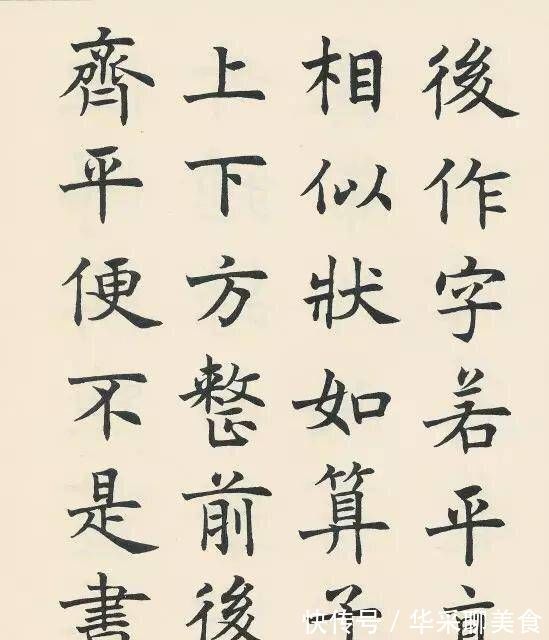 後作字若平
相似狀如算
上下方整前後
齊平便不是書
快传号/华采聊美食